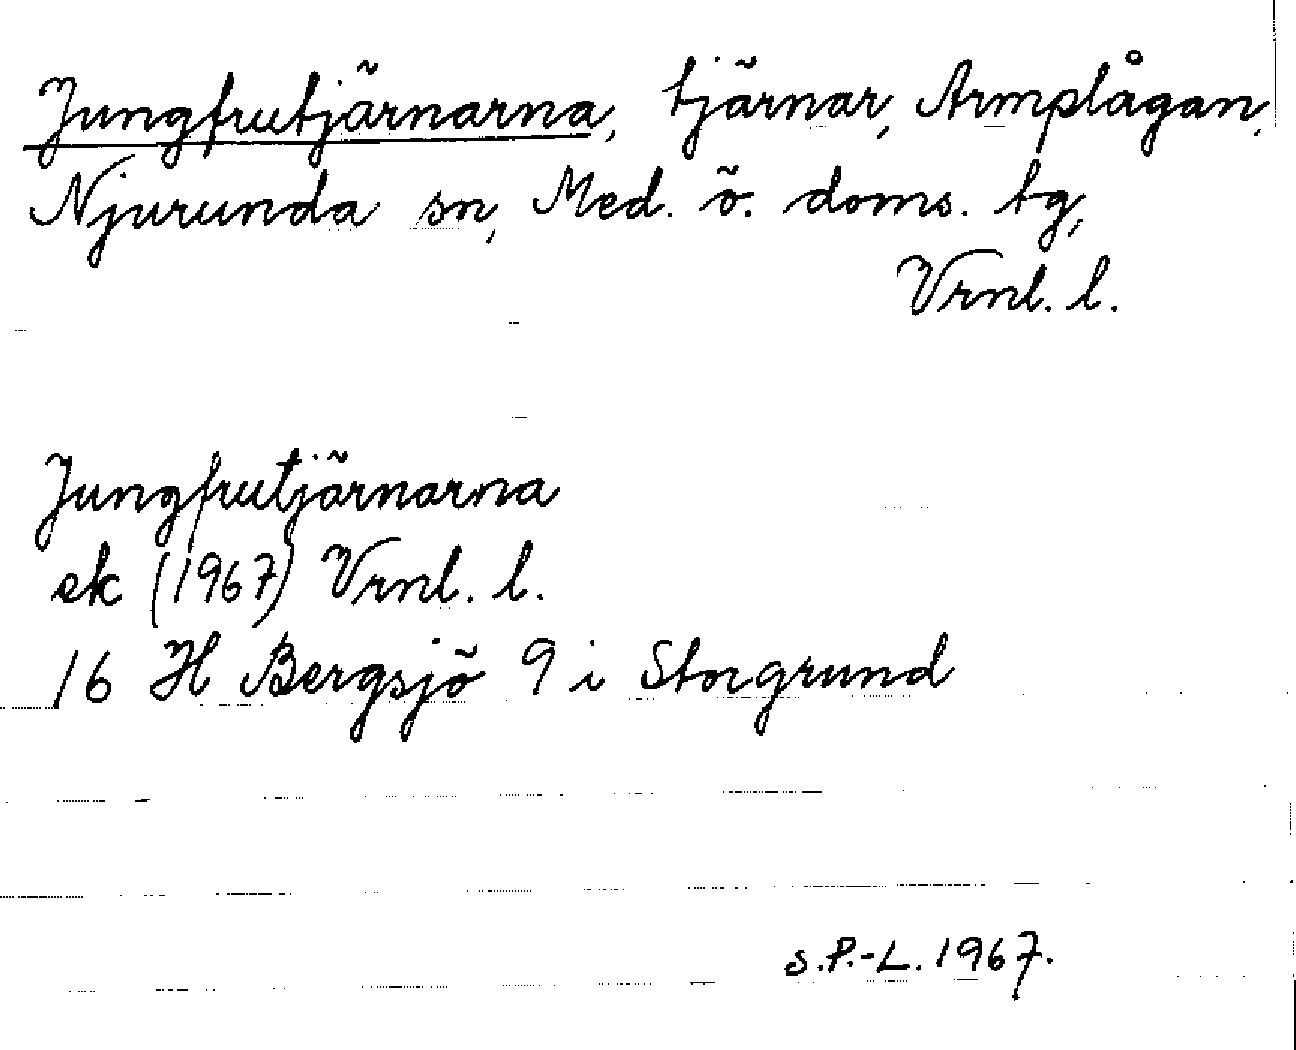 Jungfrutjärnarna, tjärnar, Armplågan,
Njurunda sn, Med. ö. doms. tg,
Vrnl. l.
Jungfrutjärnarna
ek (1967) Vrnl. l.
16 H Bergsjö 9 i Storgrund
s.P.-L. 1967.